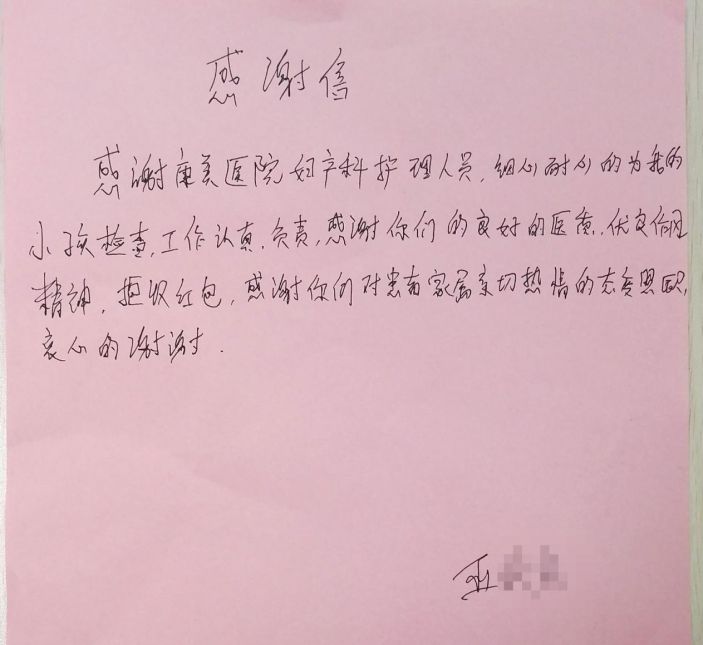 感谢信
感谢康美医院妇产科护理人员,细心耐心的为我的
小孩检查,工作认真.负责,感谢你们的良好的医质,优良作风
精神,拒收红包,感谢你们对患者家属亲切热情的态度
衷心的谢谢.